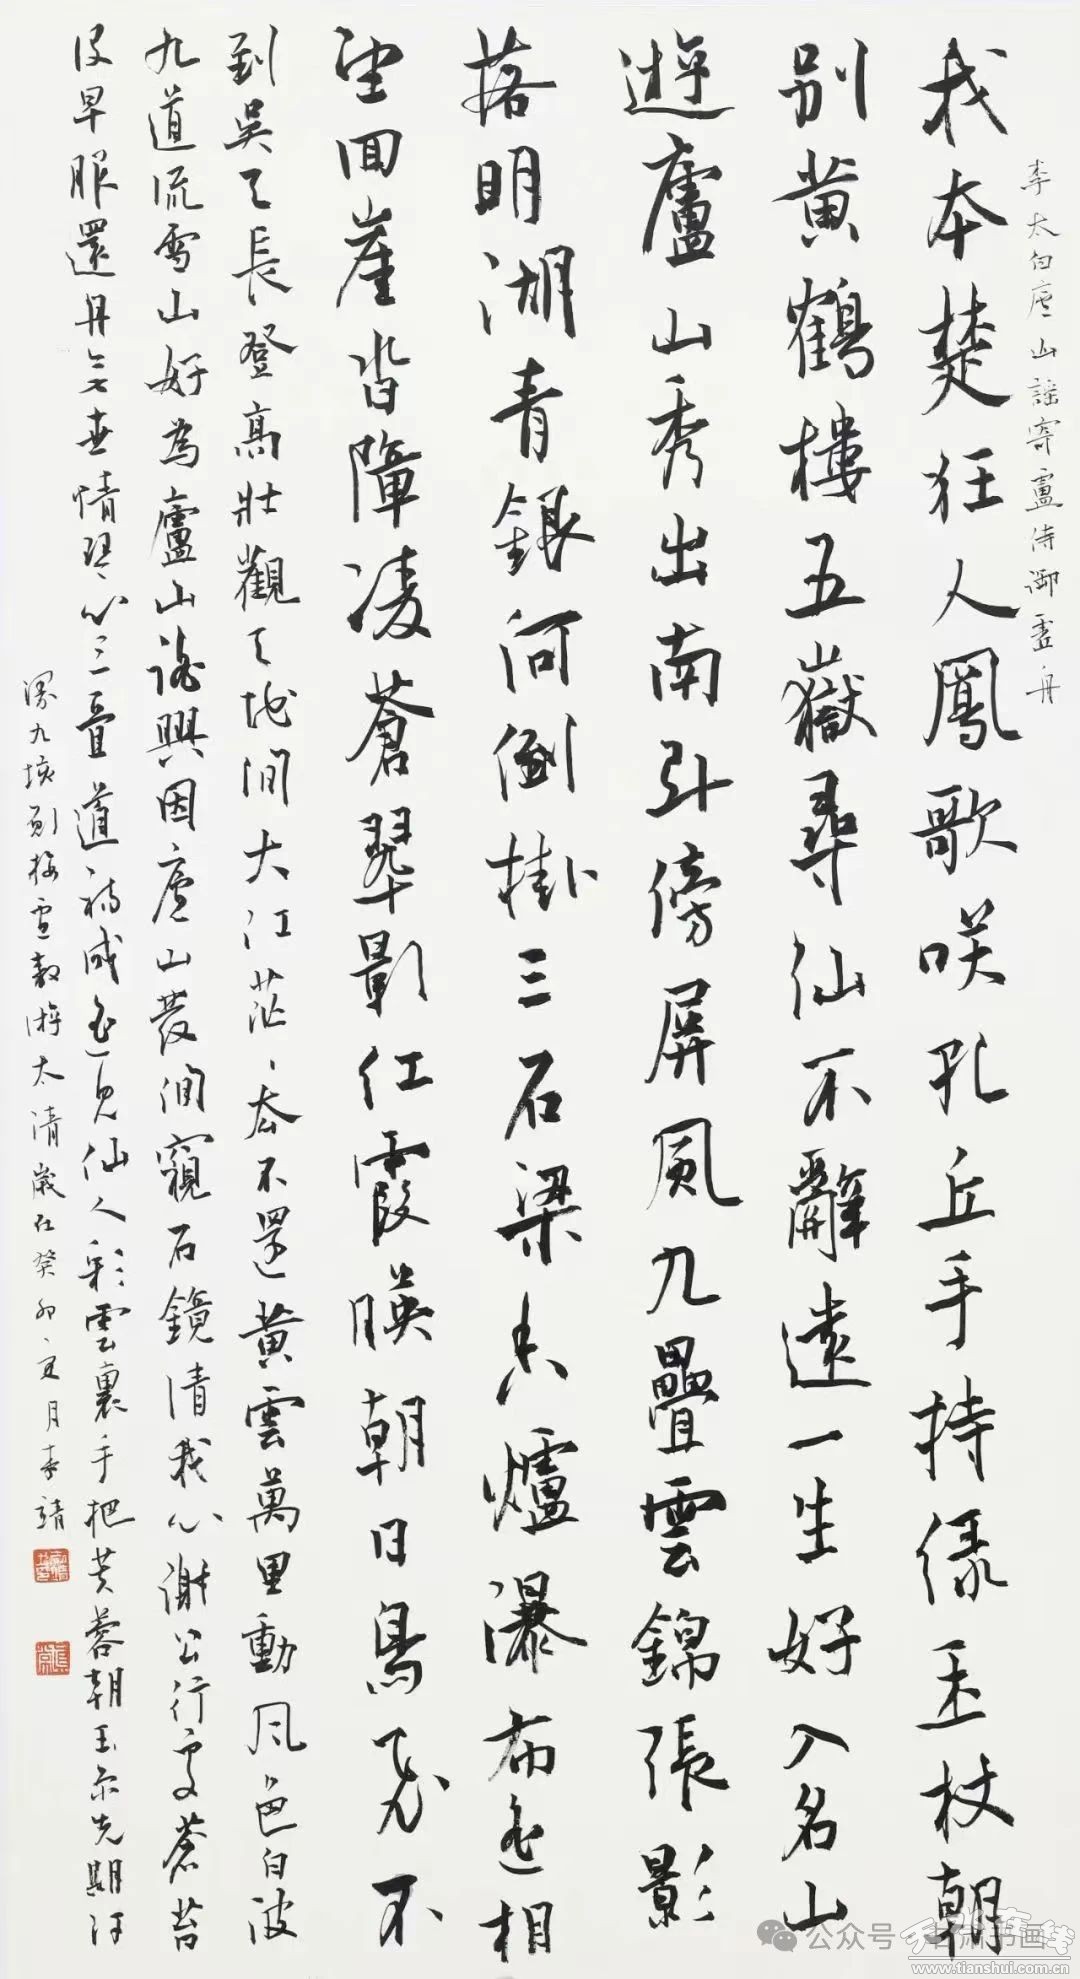 李太白廬山謠寄盧侍御虛舟
我本楚狂人鳳歌咲孔丘手持綠玉杖朝
別黃鶴樓五嶽尋仙不辭遠一生好入名山
遊廬山秀出南斗傍屏風九疊雲錦張影
落明湖青銀河倒掛三石梁香爐瀑布遥相
望回崖沓障凌蒼翠影紅霞暎朝日鳥飛不
到吳天長登高壯觀天地間大江茫茫去不還黃雲萬里動風色白波
九道流雪山好為廬山謠興因廬山發閒窺石鏡清我心謝公行處蒼苔
沒早服還丹無世情琴心三疊道初成遥見仙人彩雲裏手把芙蓉朝玉京先期汗
漫九垓願接盧敖游太清歲在癸卯月靖
公众号 甘肃书画
天水在线
www.tianshui.com.cn